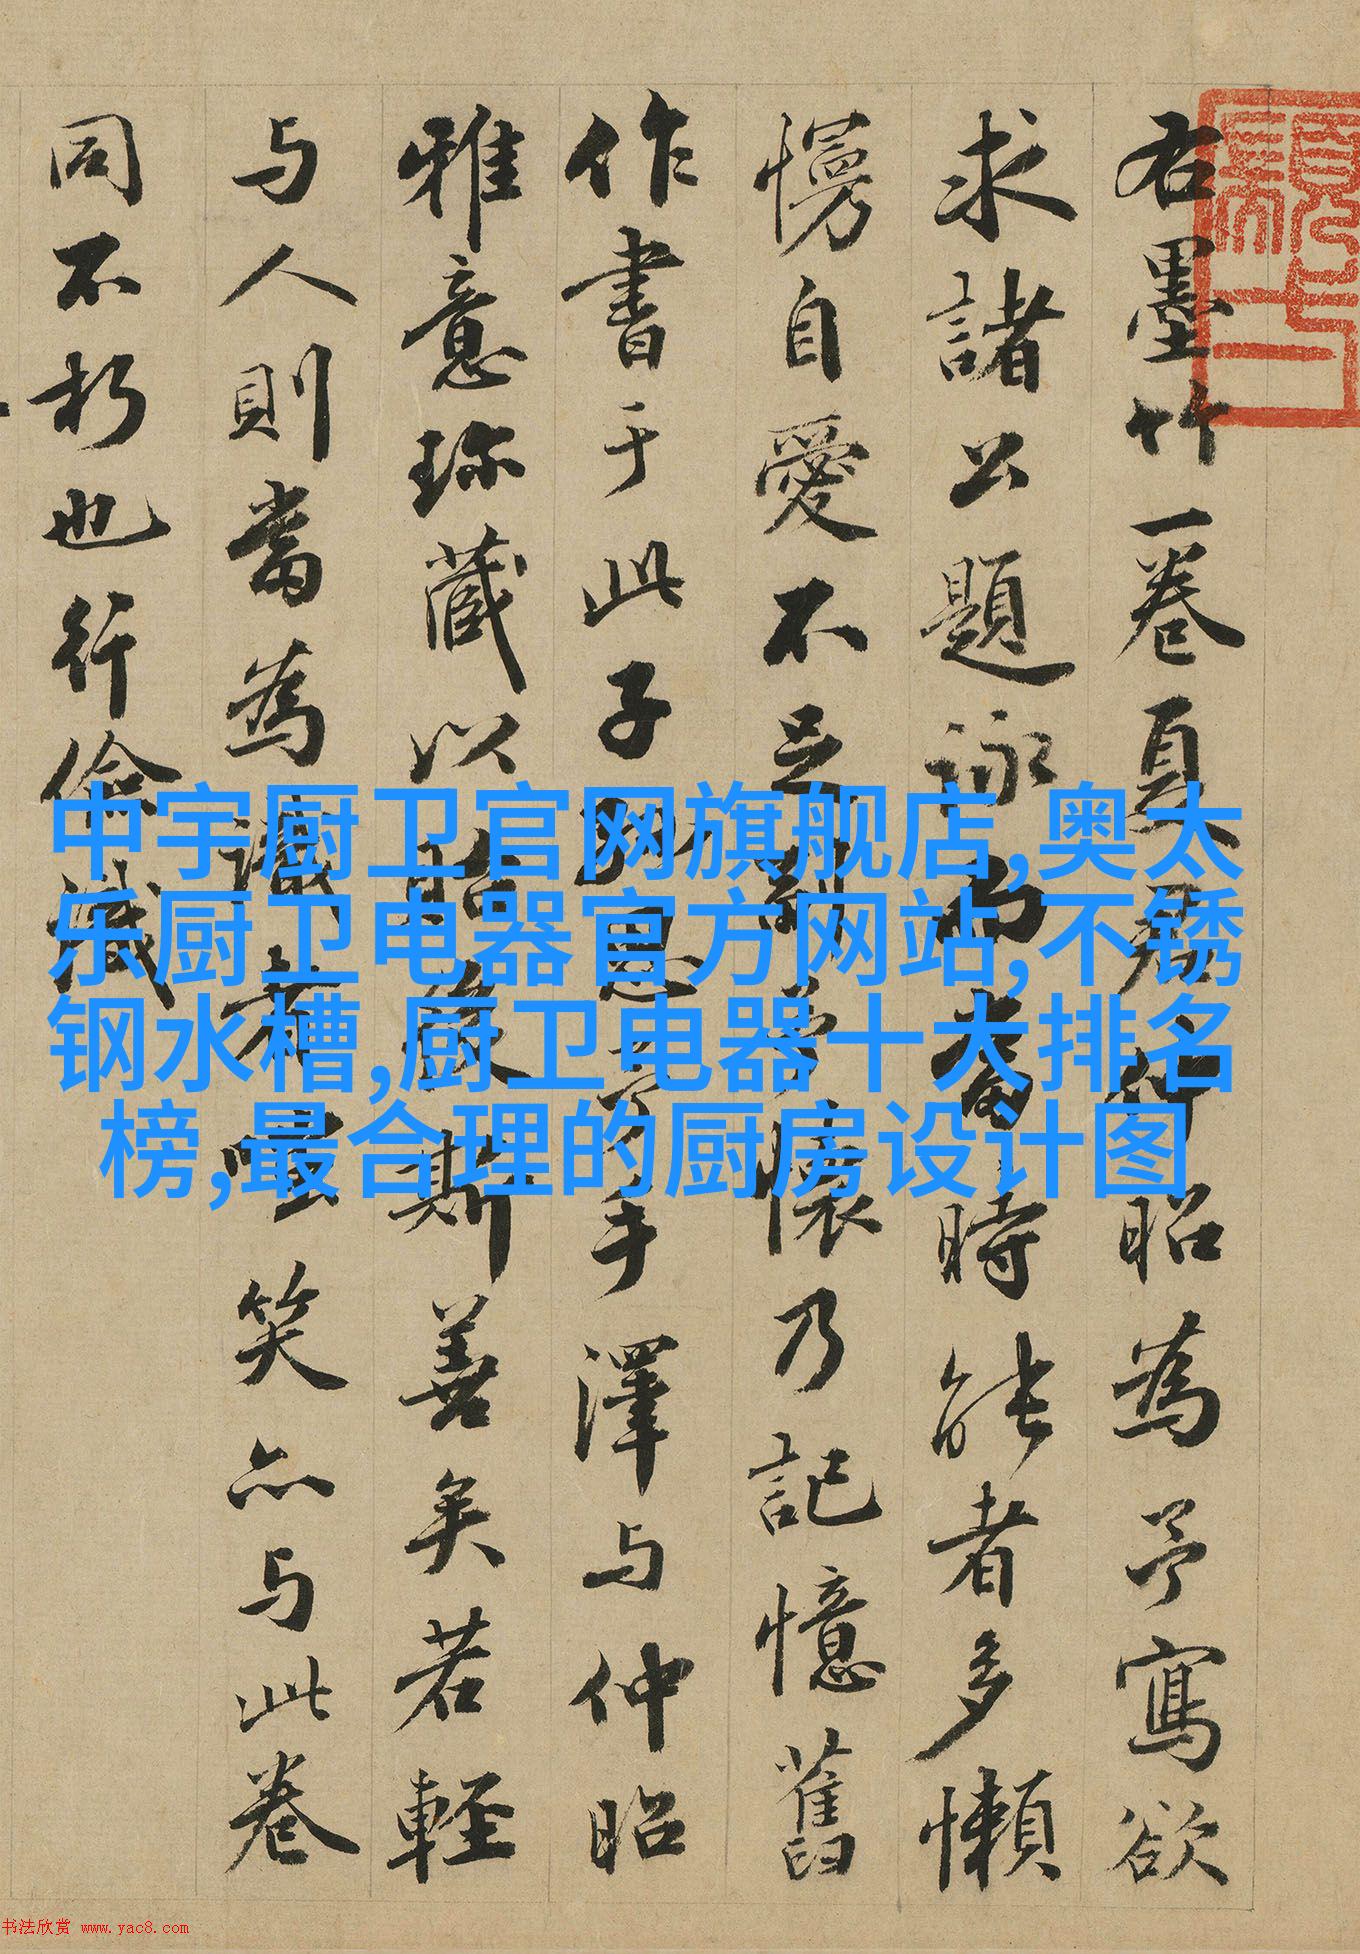 右墨竹一卷夏君仲昭為予寫欲
求諸公題詠而當時能者多懶
慢自愛不足副予懷乃記憶舊
作書于此子孫思予手澤与仲昭
雅意珎藏以貽後斯善矣若輕
与人則當為識者嗤笑亦与此卷
同不朽也行儉識
中宇厨卫官网旗舰店,奥太
乐厨卫电器官方网站,不锈
钢水槽,厨卫电器十大排名
榜,最合理的厨房设计图
书法欣赏 www.yac8.com